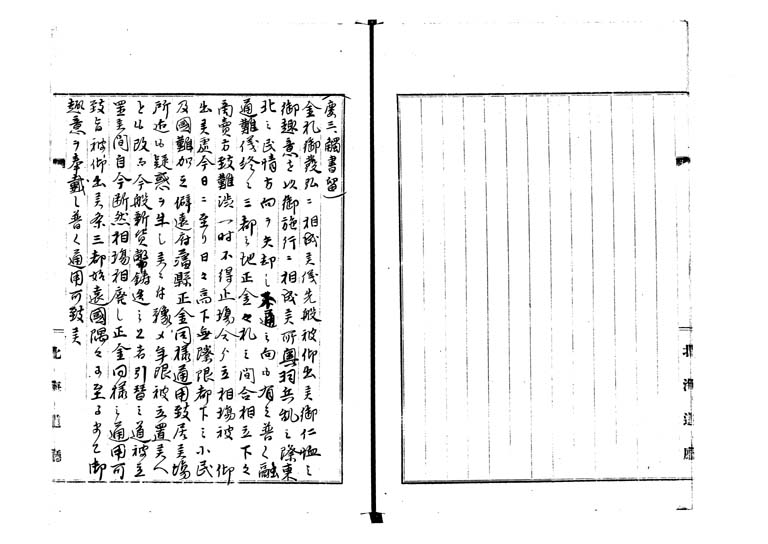 (慶三觸書留)
金札御發弘ニ相成美儀先般被仰出美御仁恤之
御趣意を以御施行ニ相成美所奥羽兵乱之際東
北之民情方向ヲ失却し不通之向も有之普く融
通難儀終ニ三都之地正金々札之間合相立下々
商賣方致難渋一時不得止場合ゟ立相場被 仰
出美處今日ニ至り日々高下無際限都下之小民
及國難加之僻遠府藩縣正金同様通用致居美場
所迄も疑惑ヲ生し美ニ付豫メ年限被立置美人
とも改而今般新貨幣鋳造之上者引替之道被立
置美間自今断然相場相廃し正金同様之通用可
致旨被仰出美条三都始遠國隅々ニ可至るまて御
趣意ヲ奉戴し普く通用可致美
北海道廳
北海道廳